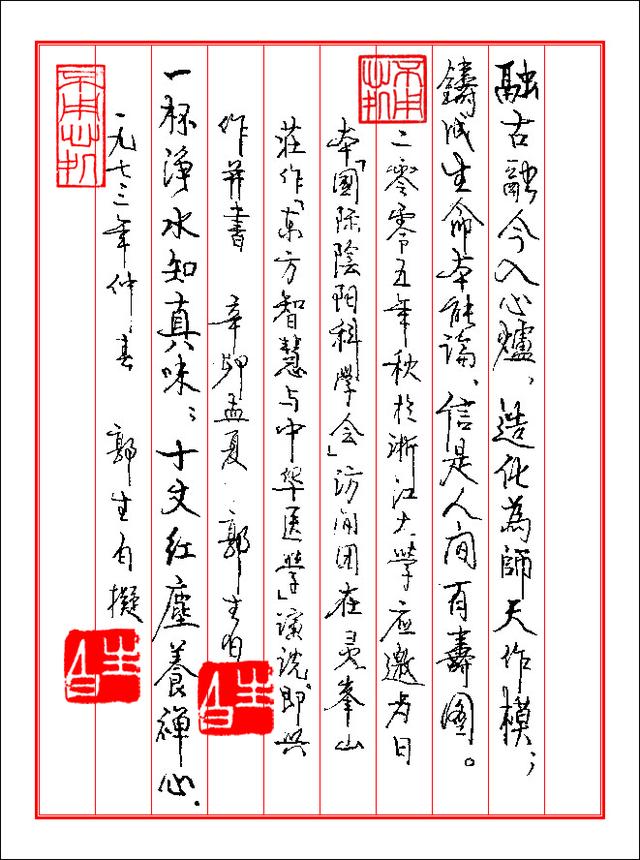 融古融今入心爐、造化為師天作模；
鑄成生命本能論、信是人间百壽圖。
二零零五年秋於浙江大學应邀为日
本「國际陰阳科學会」访问团在灵峯山
莊作「东方智慧与中华医學」演说即兴
作并書 辛卯孟夏 郭生白
一杯淨水知真味；十丈红塵養禅心.
一九七三年仲春 郭生白擬
生白
生白